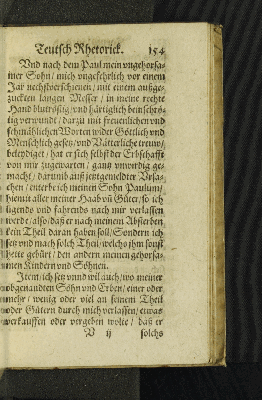 Teutsch Rhetorick. 154
Vnd nach dem Paul mein vngehorsa-
mer Sohn / mich vngefehrlich vor einem
Jar nechstverschienen / mit einem außge-
zuckten langen Messer / in meine rechte
Hand blutrüstig / vnd härtiglich beinschrö-
tig verwundt / darzu mit freuenlichen vnd
schmählichen Worten wider Göttlich vnd
Menschlich gesetz / vnd Vätterliche trewe /
beleydiget / hat er sich selbst der Erbschafft
von mir zugewarten / gantz vnwirdig ge-
macht / darumb auß jetztgemeldter Vrsa-
chen / enterbe ich meinen Sohn Paulum /
hiemit aller meiner Haab vñ Güter / so ich
ligends vnd fahrends nach mir verlassen
werde / also daß er nach meinem Absterben
kein Theil daran haben soll / Sondern ich
setz vnd mach solch Theil / welchs ihm sonst
hette gebürt / den andern meinen gehorsa-
men Kindern vnd Söhnen.
Item / ich setz vnnd wil auch / wo meiner
obgenandten Söhn vnd Erben / einer oder
mehr / wenig oder viel an seinem Theil
oder Gütern durch mich verlassen / etwas
verkauffen oder vergeben wolte / daß er
V ij solchs